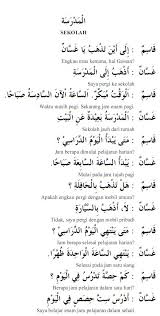 الْمَدْرَسَةُ
SEKOLAH
قَاسِمٌ : إِلَى أَيْنَ تَذْهَبُ يَا غَسَّانُ
Engkau mau kemana, hai Gossan?
غَسَّانُ : أَذْهَبُ إِلَى الْمَدْرَسَةِ
Saya pergi ke sekolah
قَاسِمٌ : اَلْوَقْتُ مُبَكِّرٌ. السَّاعَةُ الْآنَ السَّادِسَةُ صَبَاحًا.
Waktu masih pagi. Sekarang jam enam pagi
غَسَّانُ : الْمَدْرَسَةُ بَعِيْدَةٌ عَنِ الْبَيْتِ
Sekolah jauh dari rumah
قَاسِمٌ : مَتَى يَبْدَأُ الْيَوْمُ الدِّرَاسِيُّ ؟
Jam berapa dimulai pelajaran harian?
غَسَّانُ : يَبْدَأُ السَّاعَةَ السَّابِعَةَ صَبَاحًا.
Mulai pada jam tujuh pagi
قَاسِمٌ : هَلْ تَذْهَبُ بِالْحَافِلَةِ ؟
Apakah engkau pergi dengan mobil umum?
غَسَّانُ : لَا، أَذْهَبُ بِالسَّيَّارَةِ
Tidak, saya pergi dengan mobil pribadi
قَاسِمٌ : مَتَى يَنْتَهِي الْيَوْمُ الدِّرَاسِيُّ ؟
Jam berapa selesai pelajaran harian?
غَسَّانُ : يَنْتَهِي السَّاعَةَ الْوَاحِدَةَ ظُهْرًا.
Selesai pada jam satu siang
قَاسِمٌ : كَمْ حِصَّةً تَدْرُسُ فِي الْيَوْمِ ؟
Berapa jam pelajaran dalam sehari?
غَسَّانُ : أَدْرُسُ سِتَّ حِصَصٍ فِي الْيَوْمِ
Saya belajar enam jam pelajaran dalam sehari